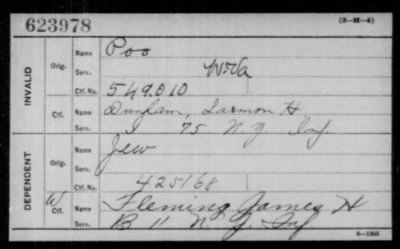 623978
(3-22-4)
INVALID
Orig. Name Poo
Serv. W. Va
Ctf. No. 549.010
Ctf. Name Dunham, Larmon H
Serv. 75 N.Y. Inf.
DEPENDENT
Orig. Name Jew
Serv.
Ctf. No. 425168
W Ctf. Name Fleming James H
Serv. B 11 N.J. Inf